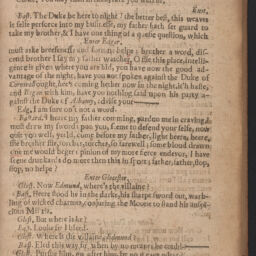 Exit,
Bast. The Duke be here to night? the better best, this weaues
it selfe perforce into my busines, my father hath set guard to
take my brother, & I haue one thing of a question, which
Enter Edgar,
must aske breefenes and fortune helpe; brother a word, dis-
cend brother I say, my father watches, O flie this place, intelli-
gence is giuen where you are hid, you haue now the good ad-
vantage of the night, haue you not spoken against the Duke of
Cornwall ought, hee's coming hether now in the night, it'h haste,
and Regan with him, haue you nothing said vpon his party a-
gainst the Duke of Albany, advise your
Edg. I am sure on't not a word.
Bast. I heare my father comming, pardon me in craving, I
must draw my sword vpon you, seeme to defend your selfe, now
quit you well, yeeld, come before my father, light here, heere,
flie brother flie, torches, torches, so farewell; some bloud drawne
on me would beget opinion of my more fierce endevour, I have
seene drunkards doe more then this in sport, father, father, stop,
stop, no helpe?
Enter Glocester,
Glost. Now Edmund, where's the villaine?
Bast. Here stood he in the darke, his sharpe sword out, warb-
ling of wicked charms, coniuring the Moone to stand his auspi-
cious Mistris.
Glost, But where is he?
Bast. Looke sir I bleed.
Glost. Where is the villaine Edmund
Bast. Fled this way sir, when by no meanes he could
Glost. Pursue him, go after him, by no